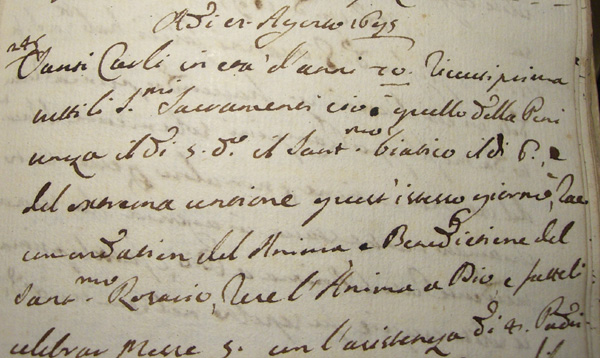 Adi 21 Agosto 1695
Santi Carli in età d'anni 70. ricevè prima
tutti li S.mi Sacramenti cioè quello della Peni
tenza il dì 5. do. il Sant.mo viatico il dì 6., e
del extrema untione quest'istesso giorno, Rac
comandation del Anima e Benedictione del
Sant.mo Rosario, Rese l'Anima a Dio, e fatteli
celebrar Messe 5. con l'asistenza di 4.